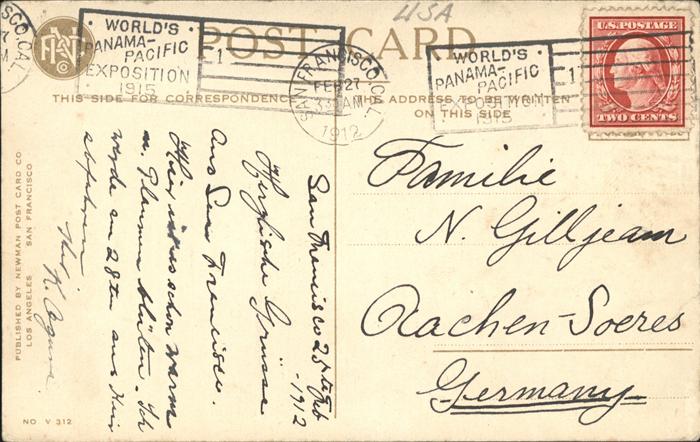 USA
POST CARD
WORLD'S
PANAMA-
PACIFIC
EXPOSITION
1915
1
SAN FRANCISCO, CAL.
FEB 27
3 30 AM
1912
WORLD'S
PANAMA-
PACIFIC
EXPOSITION
1915
1
U.S. POSTAGE
TWO CENTS
THIS SIDE FOR CORRESPONDENCE
THE ADDRESS TO BE WRITTEN
ON THIS SIDE
San Francisco 25te Feb
- 1912
Herzliche Grüsse
aus San Francisco.
Hier ist es schon warm
u. Blumen blühen. Ich
werde am 28ten aus hier
abfahren
Familie
N. Gilljeam
Aachen-Soeres
Germany
PUBLISHED BY NEWMAN POST CARD CO
LOS ANGELES SAN FRANCISCO
NO. V 312